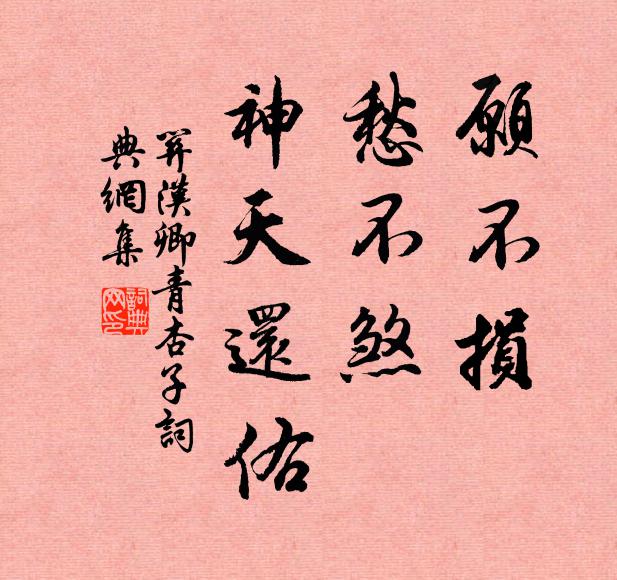 願不損
愁不煞
神天還佑
關漢卿青杏子詞
典網集
詞典
网印